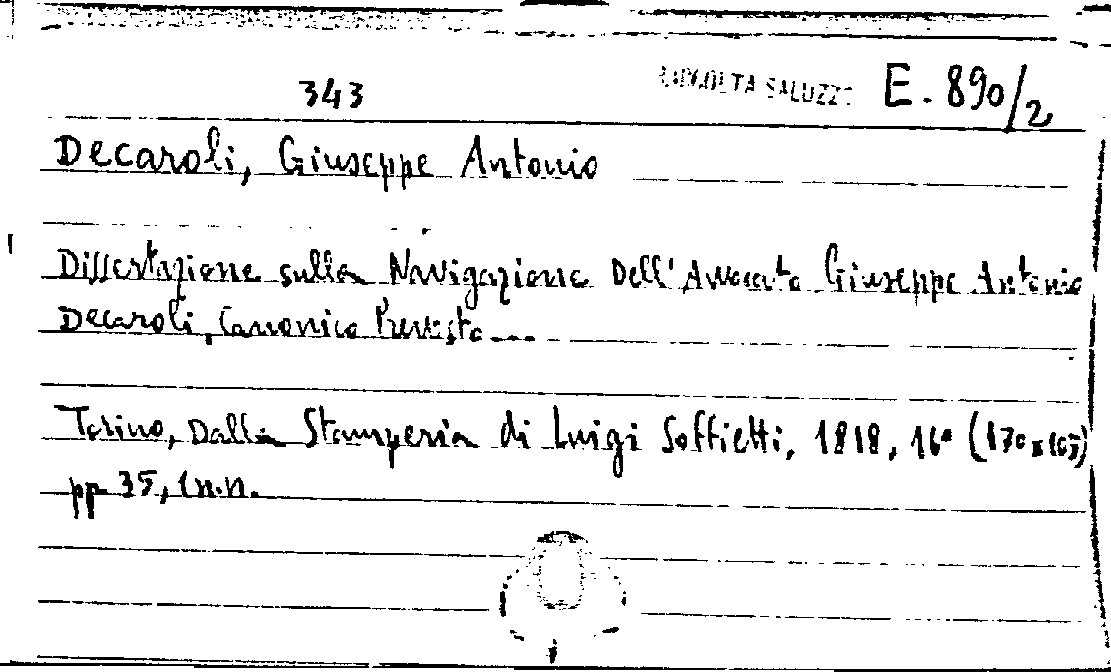 343 SALUZZO E. 890/2
Decaroli, Giuseppe Antonio
Dissertazione sulla Navigazione Dell'Avvocato Giuseppe Antonio
Decaroli, Canonico Prevosto...
Torino, Dalla Stamperia di Luigi Soffietti, 1818, 16° (170x105)
pp 35, 1 n.n.